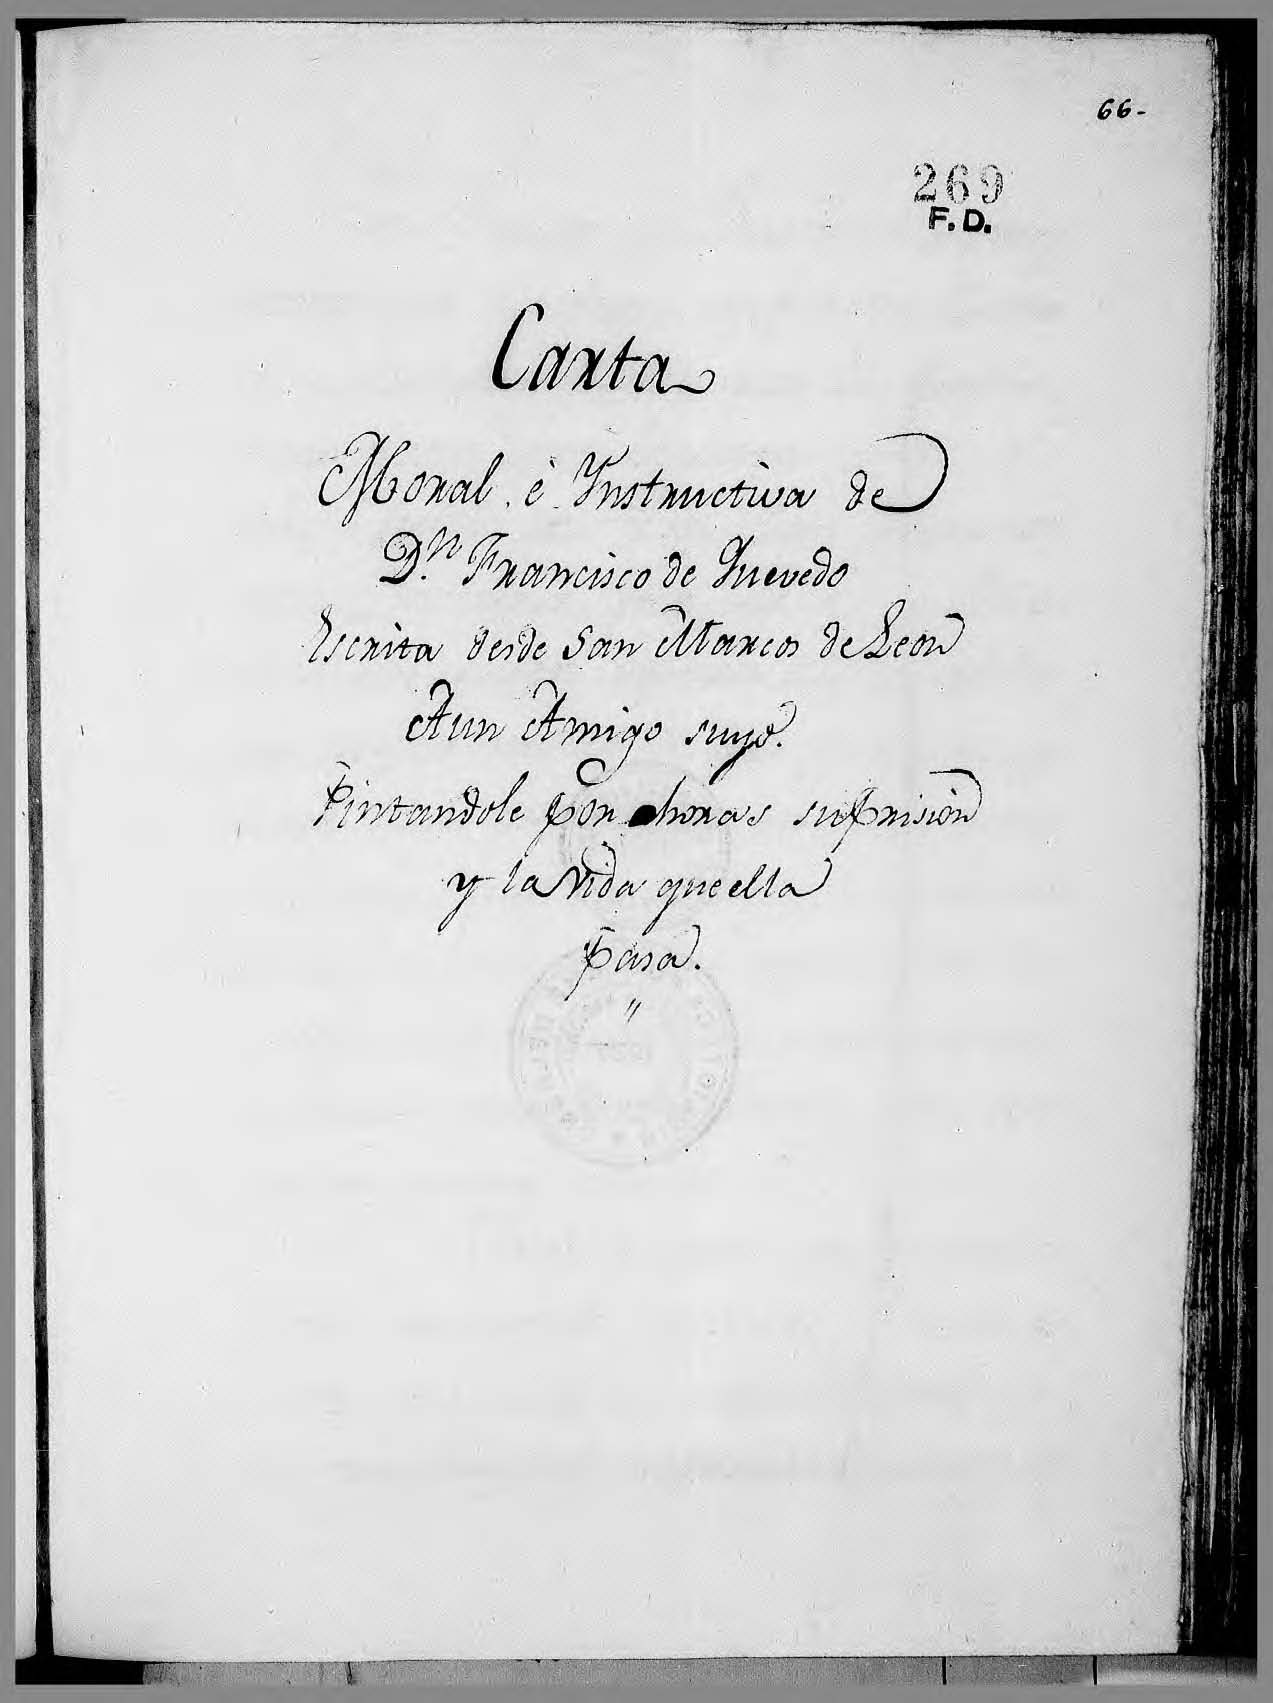 66-
269
F. D.
Carta
Moral, è Instructiva de
D.n Francisco de Quevedo
Escrita desde San Marcos de Leon
Aun Amigo suyo.
Pintandole por horas su Prision
y la Vida que ella
pasa.